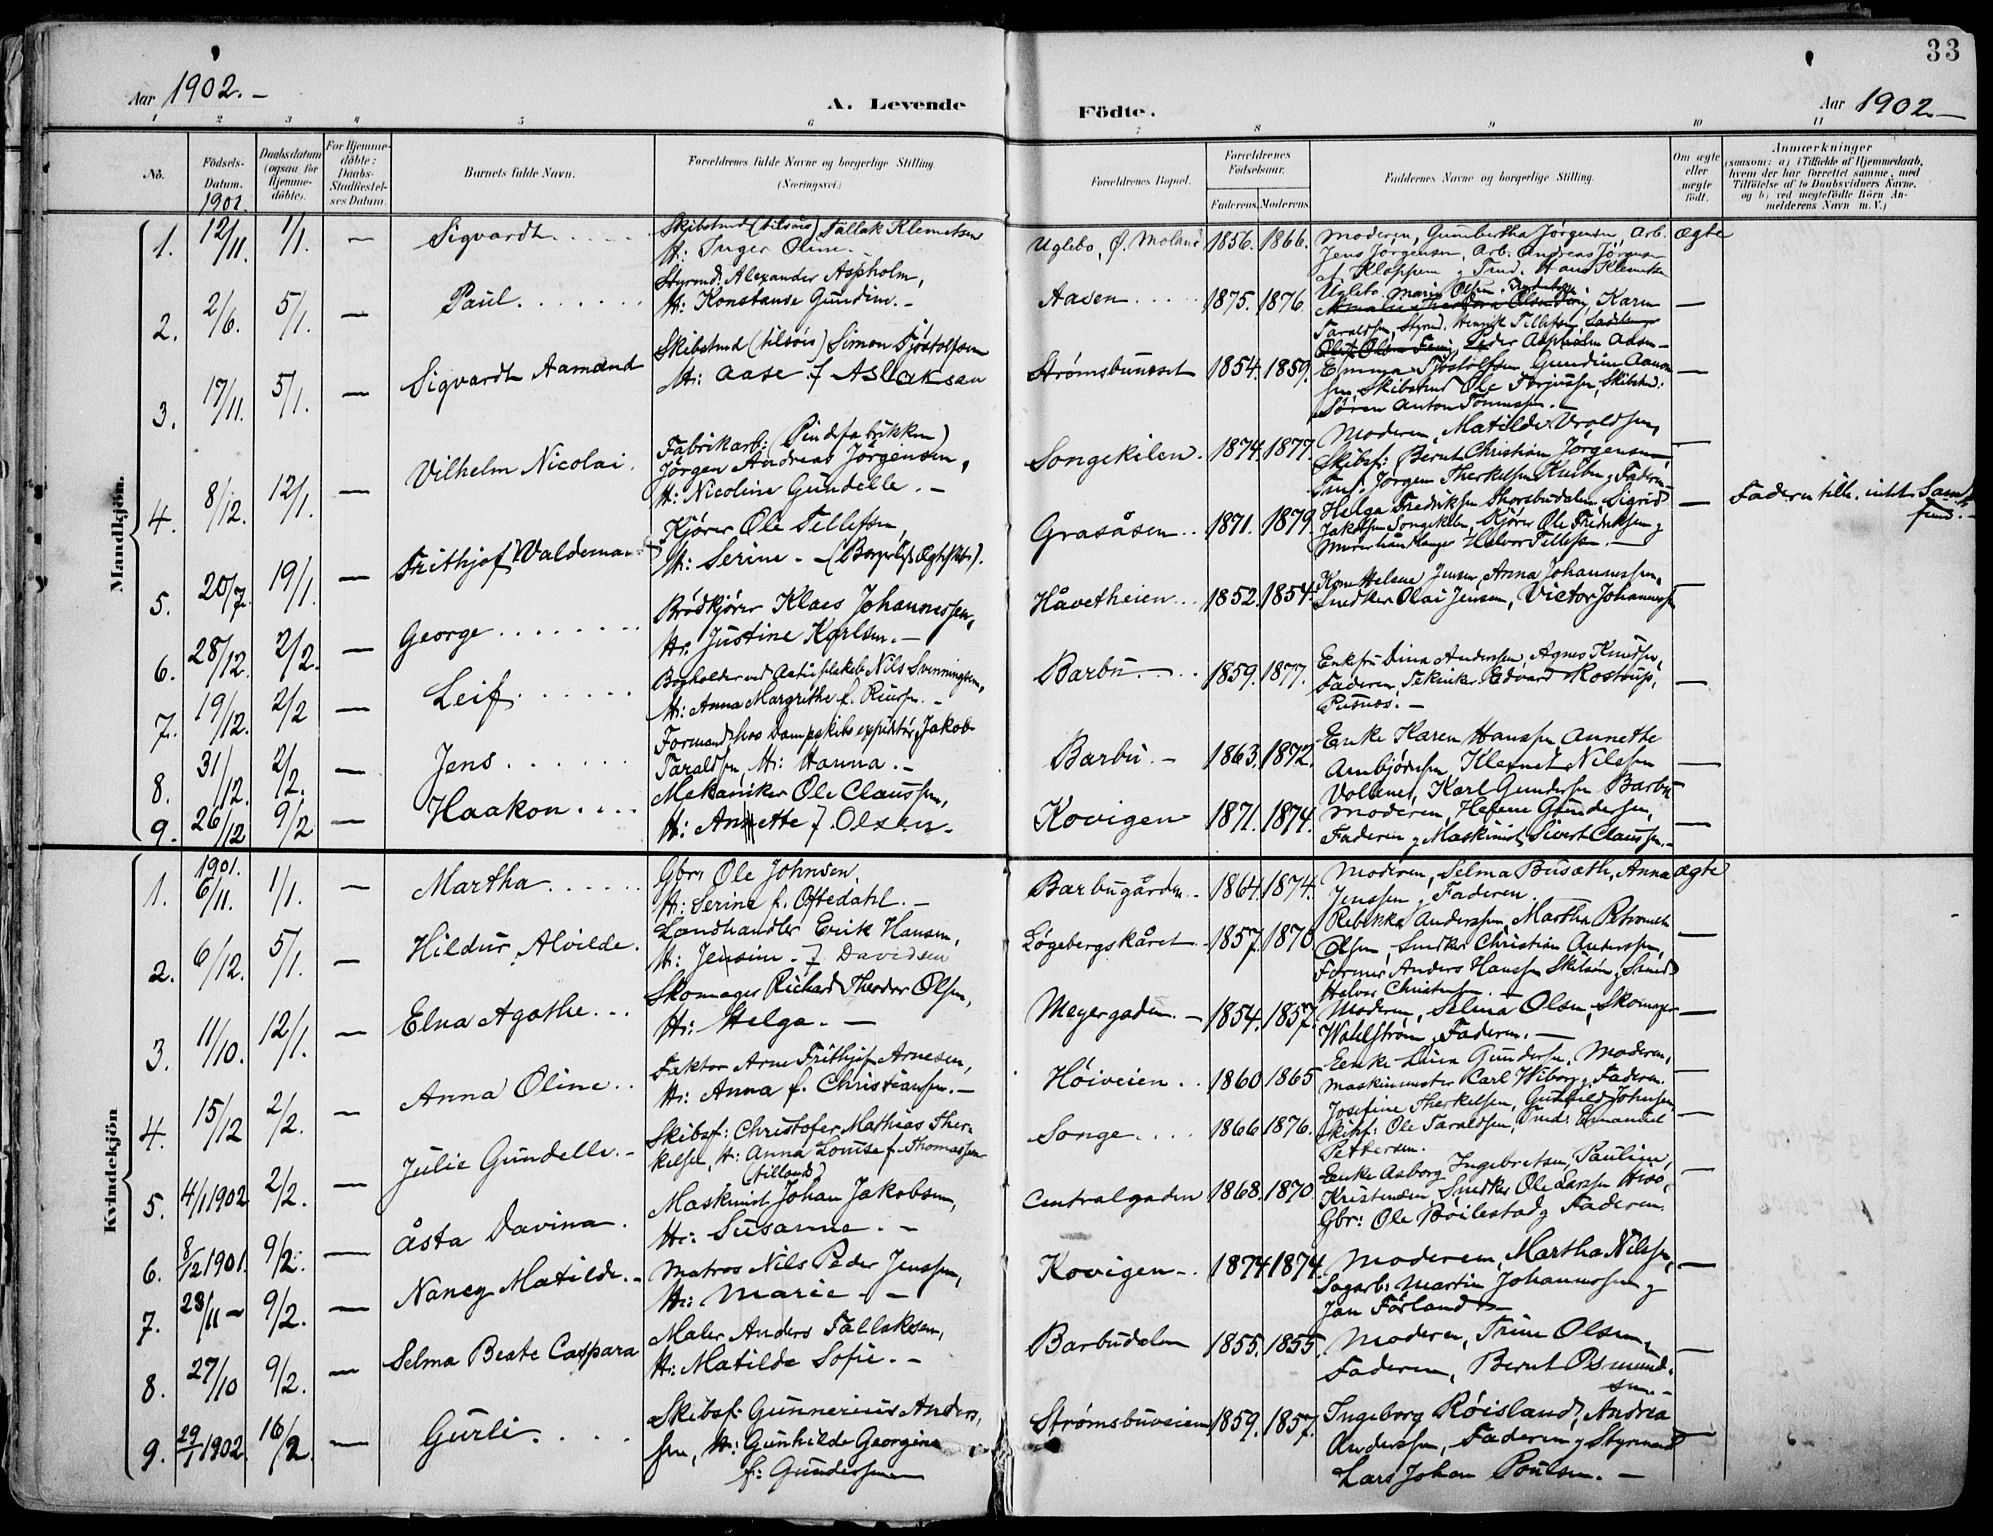 33
Aar 1902.-
A. Levende
Födte.
Aar 1902.-
1 2 3 4 5 6 7 8 9 10 11
No.
Födsels-
Datum.
1901.
Daabsdatum
(ogsaa for
Hjemme-
döbte).
For Hjemme-
döbte:
Daabs-
Stadfæstel-
ses Datum.
Barnets fulde Navn.
Forældrenes fulde Navne og borgerlige Stilling
(Næringsvei.)
Forældrenes Bopæl.
Forældrenes
Födselsaar.
Faderens. Moderens.
Faddernes Navne og borgerlige Stilling.
Om ægte
eller
uægte
födt.
Anmærkninger
(saasom: a) i Tilfælde af Hjemmedaab,
hvem der har forrettet samme, med
Tilföielse af to Daabsvidners Navne.
og b) ved uegtefödte Börn An-
melderens Navn m. V.)
Mandkjön.
1. 12/11. 1/1. — Sigvardt
Skibstmd (tilsöis) Tallak Klemetsen
Hr: Inger Oline.
Uglebo, Ø. Moland 1856. 1866.
Moderen, Gumbertha Jørgensen, Arb.
Jens Jørgensen, Arb. Andreas Jørgensen
ægte
2. 2/6. 5/1. — Paul
Styrmd: Alexander Aspholm,
Hr: Konstanse Gundine.-
Aasen 1875. 1876.
Karen
Taraldsen, Styrmd. Henrik Tellefsen,
Peder Aspholm
—
3. 17/11. 5/1. — Sigvardt Aamund
Skibstmd (tilsöis) Simon Tjöstolfsen
Hr: Aase f Aslaksen
Strømsbuneset 1854. 1859.
Emma Tjöstolfsen, Gundine Aanon-
sen, Skibstmd Ole Terjussen, Skibstmd:
Søren Anton Tönnessen.-
—
4. 8/12. 12/1. — Vilhelm Nicolai.
Fabrikarb: (Pindefabrikken)
Jørgen Andreas Jørgensen,
Hr: Nicoline Gundelle.-
Songekilen. 1874. 1877.
Moderen, Matilde Vroldsen,
Skibsf: Bernt Christian Jørgensen,
Jørgen Therkelsen Faderen
—
5. 20/7. 19/1. — Frithjof Valdemar
Kjører Ole Tellefsen,
Hr: Serine.- (Borgerligt Ægteskab).
Grasåsen 1871. 1879.
Helga Fredriksen Sigrid
Jakobsen Songekilen, Kjører Ole Fredriksen
Murerhåndlanger Halvor Tellefsen.-
—
Faderen tilh. intet Sam-
fund.-
6. 28/12. 2/2. — George
Brødkjører Klaes Johannessen,
Hr: Justine Karlsen.-
Håvetheien 1852. 1854.
Kone Helene Jensen, Anna Johannessen,
Snedker Olai Jensen, Victor Johannessen
—
7. 19/12. 2/2 — Leif
Bogholder ved Nils Svenningsen,
Hr: Anna Margrethe f.
Barbu 1859. 1877.
Enkefru Dina Andersen, Agnes Knudsen,
Faderen, Edvard Rostrup,
Pusnæs.-
—
8. 31/12. 2/2. — Jens
Formand hos Dampskibsexpeditör Jakob
Taraldsen, Hr: Hanna.-
Barbu.- 1863. 1872.
Enke Karen Hanssen, Annette
Arnbjörnsen, Klemet Nilssen
Vollene, Karl Gundersen Barbu
—
9. 26/12 9/2 — Haakon
Mekaniker Ole Claussen,
Hr: Annette f. Olsen.-
Kovigen 1871. 1874.
Moderen, Helene Gundersen,
Faderen Maskinist Sivert Claussen.-
—
Kvindekjön
1901.
1. 6/11. 1/1. — Martha
Gbr: Ole Johnsen.
Hr: Serine f. Oftedahl.-
Barbugården 1864. 1874.
Moderen, Selma Busæth, Anna
Jenssen Faderen.
ægte
2. 6/12. 5/1. — Hildur Alvilde.
Landhandler Erik Hansen,
Hr: Jensine.- f Davidsen
Løgebergskåret 1857. 1870.
Rebekka Anderssen, Martha
Olsen, Snedker Christian Anderssen,
Former Anders Hanssen Smed
Halvor Christensen.
—
3. 11/10. 12/1. — Elna Agathe
Skomager Richard Theodor Olsen,
Hr: Helga.-
Meyergaden.- 1854. 1857.
Moderen, Selma Olsen, Skomager
Wahlstrøm, Faderen.-
—
4. 15/12 2/2. — Anna Oline
Faktor Arne Frithjof Arnesen,
Hr: Anna f. Christiansen.-
Høiveien 1860 1865
Enke Gundersen, Moderen,
Maskinmester Carl Wiborg, Faderen.
—
5. 4/1 1902 2/2. — Julie Gundelle.-
Skibsf: Christofer Mathias Ther-
kelsen, Hr: Anna Louise f. Thomassen
Songe 1866 1876.
Josefine Therkelsen, Gunhild Johnsen,
Skibsf: Ole Taraldsen, Emanuel
Pettersen.
—
6. 8/12 1901. 9/2. — Åsta Davina.
Maskinist Johan Jakobsen,
Hr: Susanne.-
Centralgaden 1868. 1870.
Enke Asborg Ingebretsen, Pauline
Snedker Ole Larsen
Gbr: Ole Bøilestad, Faderen.
—
7. 28/11 - 9/2. — Nancy Matilde.-
Matros Nils Peder Jenssen,
Hr: Marie.-
Kovigen.- 1874 1874.
Moderen, Martha Nilssen,
Sagarb: Martin Johannessen
Jan Förland.-
—
8. 27/10 9/2. — Selma Beate Caspara
Maler Anders Tallaksen,
Hr: Matilde Sofie.-
Barbudalen 1855. 1855.
Moderen, Trine Olsen,
Faderen, Bernt Osmund-
sen.-
—
9. 29/1 1902 16/2. — Gurli.
Skibsf: Gunnerius Anders-
sen, Hr: Gunhilde Georgine
f: Gunderssen
Strømsbuveien 1859. 1857.
Ingeborg Røisland, Andrea
Anderssen, Faderen Styrmand
Lars Johan Poulsen.-
—